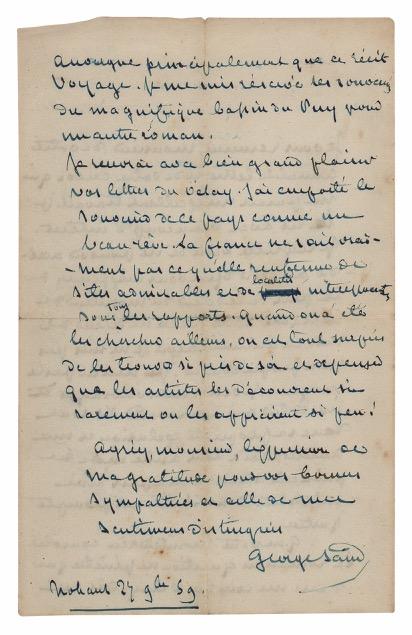 auvergne principalement que ce récit
voyage. Je me suis réservé les souvenirs
du magnifique bassin du Puy pour
un autre roman.
Je reverrai avec bien grand plaisir
vos lettres du Velay. J'ai emporté le
souvenir de ce pays comme un
beau rêve. La France ne sait vrai-
-ment pas ce qu'elle renferme de
sites admirables et de localités intéressantes
sous tous les rapports. Quand on a été
les chercher ailleurs, on est tout surpris
de les trouver si près de soi et de penser
que les artistes les découvrent si
rarement ou les apprécient si peu!
Agréez, monsieur, l'expression de
ma gratitude pour vos bonnes
sympathies et celle de mes
sentimens distingués
George Sand
Nohant 27 9bre 59.